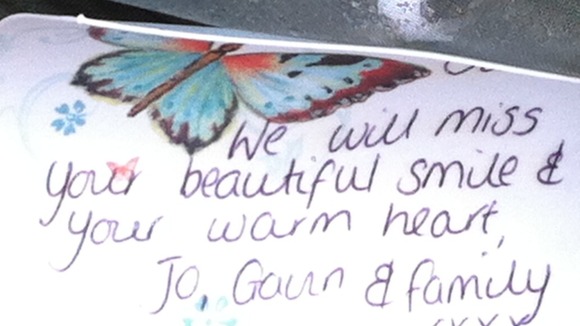 We will miss
your beautiful smile &
your warm heart,
Jo, Gavin & family
xxx